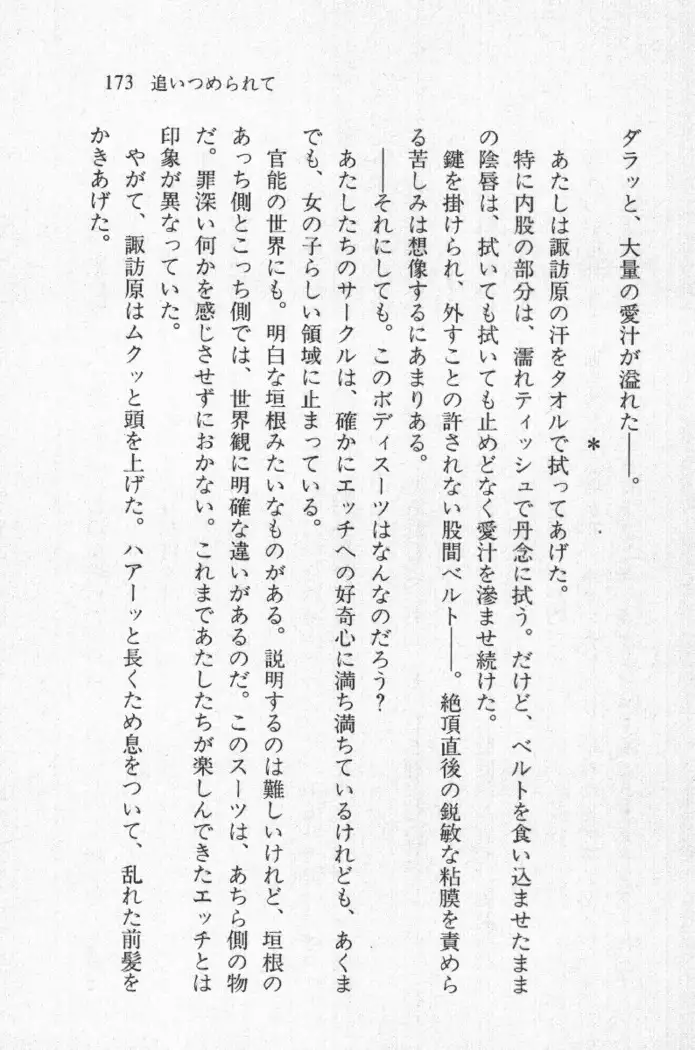 173 追いつめられて
ダラッと、大量の愛汁が溢れた――。
*
あたしは諏訪原の汗をタオルで拭ってあげた。
特に内股の部分は、濡れティッシュで丹念に拭う。だけど、ベルトを食い込ませたまま
の陰唇は、拭いても拭いても止めどなく愛汁を滲ませ続けた。
鍵を掛けられ、外すことの許されない股間ベルト――。絶頂直後の鋭敏な粘膜を責めら
る苦しみは想像するにあまりある。
――それにしても。このボディスーツはなんなのだろう?
あたしたちのサークルは、確かにエッチへの好奇心に満ち満ちているけれども、あくま
でも、女の子らしい領域に止まっている。
官能の世界にも。明白な垣根みたいなものがある。説明するのは難しいけれど、垣根の
あっち側とこっち側では、世界観に明確な違いがあるのだ。このスーツは、あちら側の物
だ。罪深い何かを感じさせずにおかない。これまであたしたちが楽しんできたエッチとは
印象が異なっていた。
やがて、諏訪原はムクッと頭を上げた。ハアーッと長くため息をついて、乱れた前髪を
かきあげた。